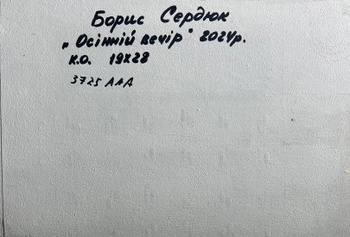 Борис Сердюк
„Осінній вечір" 2024р.
к.о. 19х28
3725 ААА